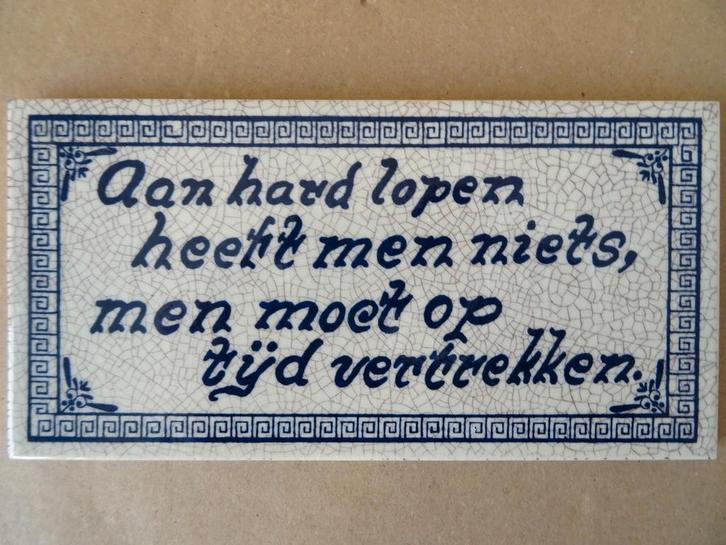 Aan hard lopen
heeft men niets,
men moet op
tijd vertrekken.